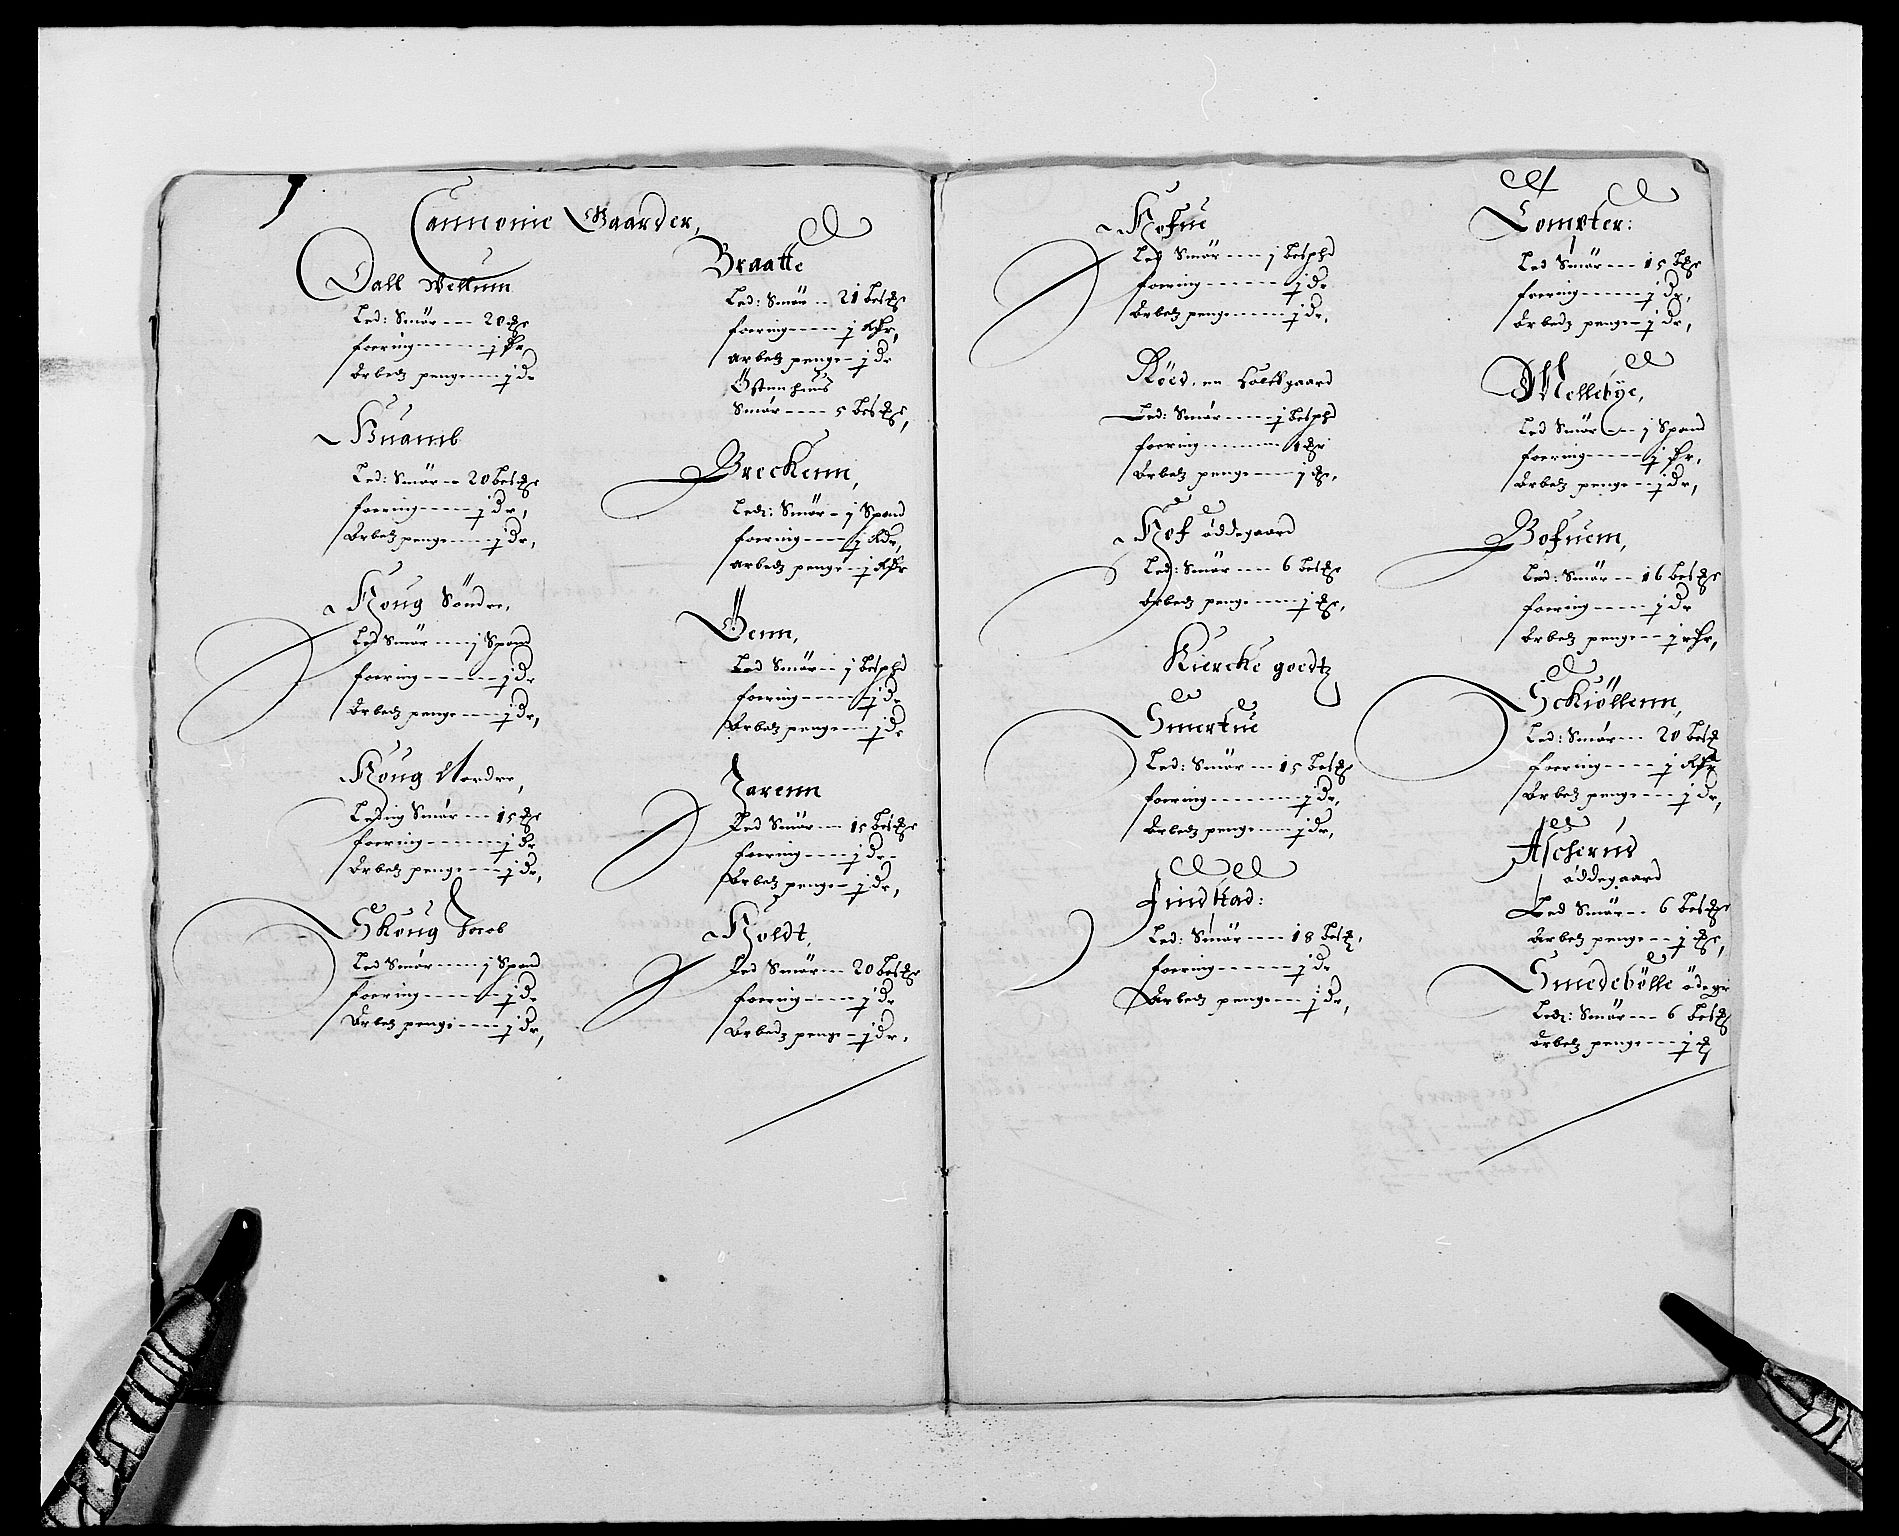 Cannonie Gaarder,
Dall Wellum
Led: Smør --- 20
foering ------ j
Arbedz penge --- j dr
Huamb
Led: Smør -- 20 bes
foering ---- j dr,
Arbedz penge ---- j dr,
Houg Søndre,
Led Smør ---- j Spand
foering ------ j dr
Arbedz penge ---- j dr,
Houg Nordre,
Leding Smør --- 15
foering ------- j dr
Arbedz penge --- j dr,
Skoug Jacob
Led Smør ---- j Spand
foering ------ j dr
Arbedz penge ---- j dr,
Braatte
Led: Smør -- 21 bes
foering ----- j
arbedz penge -- j dr
Østenhuus
Smør ---- 5 bes
Breckenn,
Led: Smør - j Spand
foering ---- j
arbedz penge -- j
Øenn,
Led Smør --- j besphd
foering ----- j dr
Arbedz penge --- j dr
Jarenn
Led Smør --- 15 bes
foering ---- j dr
Arbedz penge - j dr,
Holdt,
Led Smør --- 20 bes
foering ---- j dr
Arbedz penge -- j dr.
Hofue
Led Smør --- j besphd
foering ------- j dr
Arbedz penge ---- j dr,
Røed, en
Led: Smør ---- j besphd
foering --------
Arbedz penge --- j
Hof øddegaard
Led: Smør --- 6 bes
Arbedz penge ---- j
Kiercke goedtz
Smertue
Led: Smør --- 15 bes
foering ------- j dr,
Arbedz penge --- j dr,
Findstad:
Led: Smør --- 18 bes
foering ------ j dr
Arbedz penge --- j dr,
Lomster:
Led Smør --- 15
foering ----- j dr,
Arbedz penge - j dr,
Mellebye,
Led Smør --- j Spand
foering ---- j
Arbedz penge --- j dr,
Bofuem,
Led: Smør -- 16 bes
foering ---- j dr
Arbedz penge --- j
Sckiøllenn,
Led: Smør --- 20 bes
foering ---- j
Arbedz penge --- j dr,
Ascherud
øddegaard
Led Smør -- 6 bes
Arbedz penge -- j
Smedebølle ødegr
Led: Smør --- 6 bes
Arbedz penge --- j